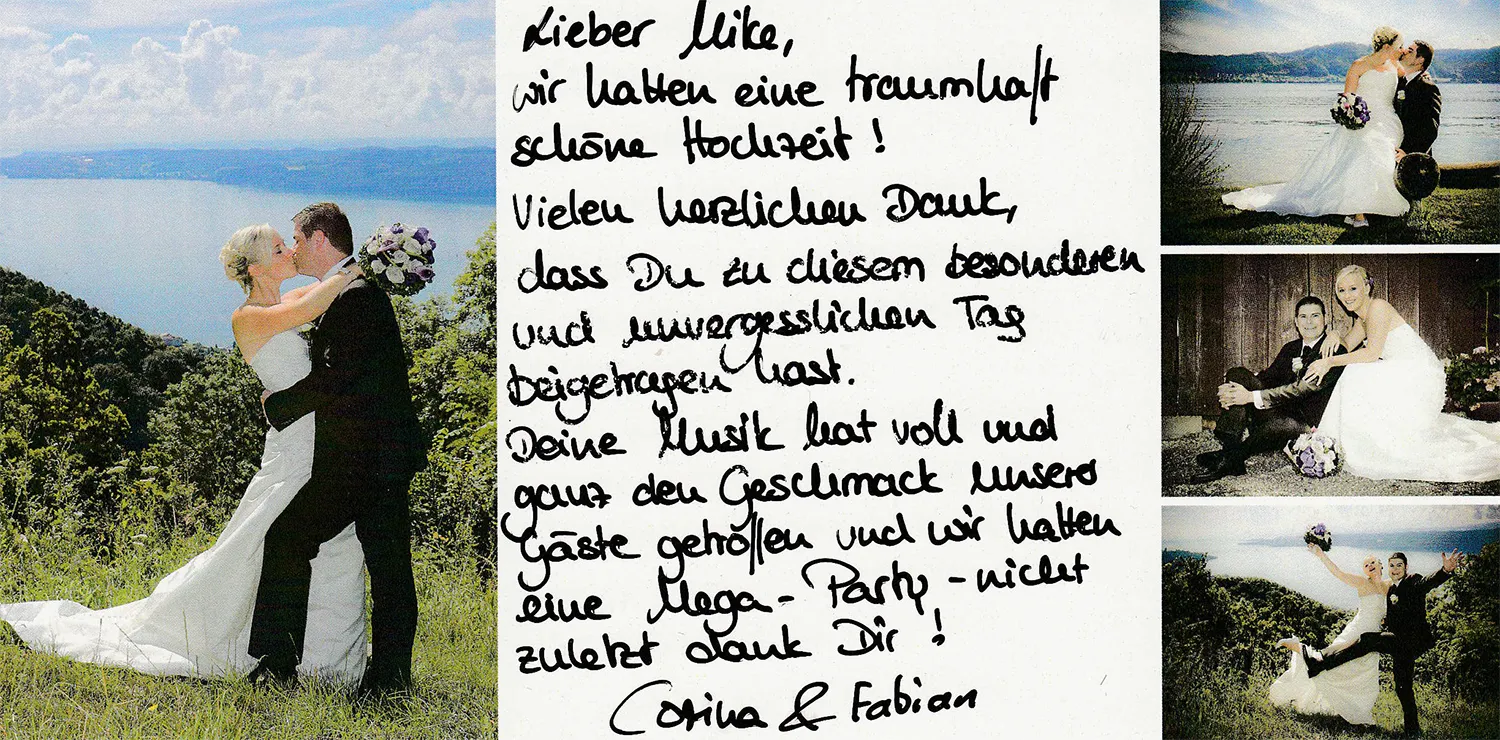 Lieber Mike,
wir hatten eine traumhaft
schöne Hochzeit!
Vielen herzlichen Dank,
dass Du zu diesem besonderen
und unvergesslichen Tag
beigetragen hast.
Deine Musik hat voll und
ganz den Geschmack unsers
Gäste getroffen und wir hatten
eine Mega-Party - nicht
zuletzt dank Dir!
Corina & Fabian